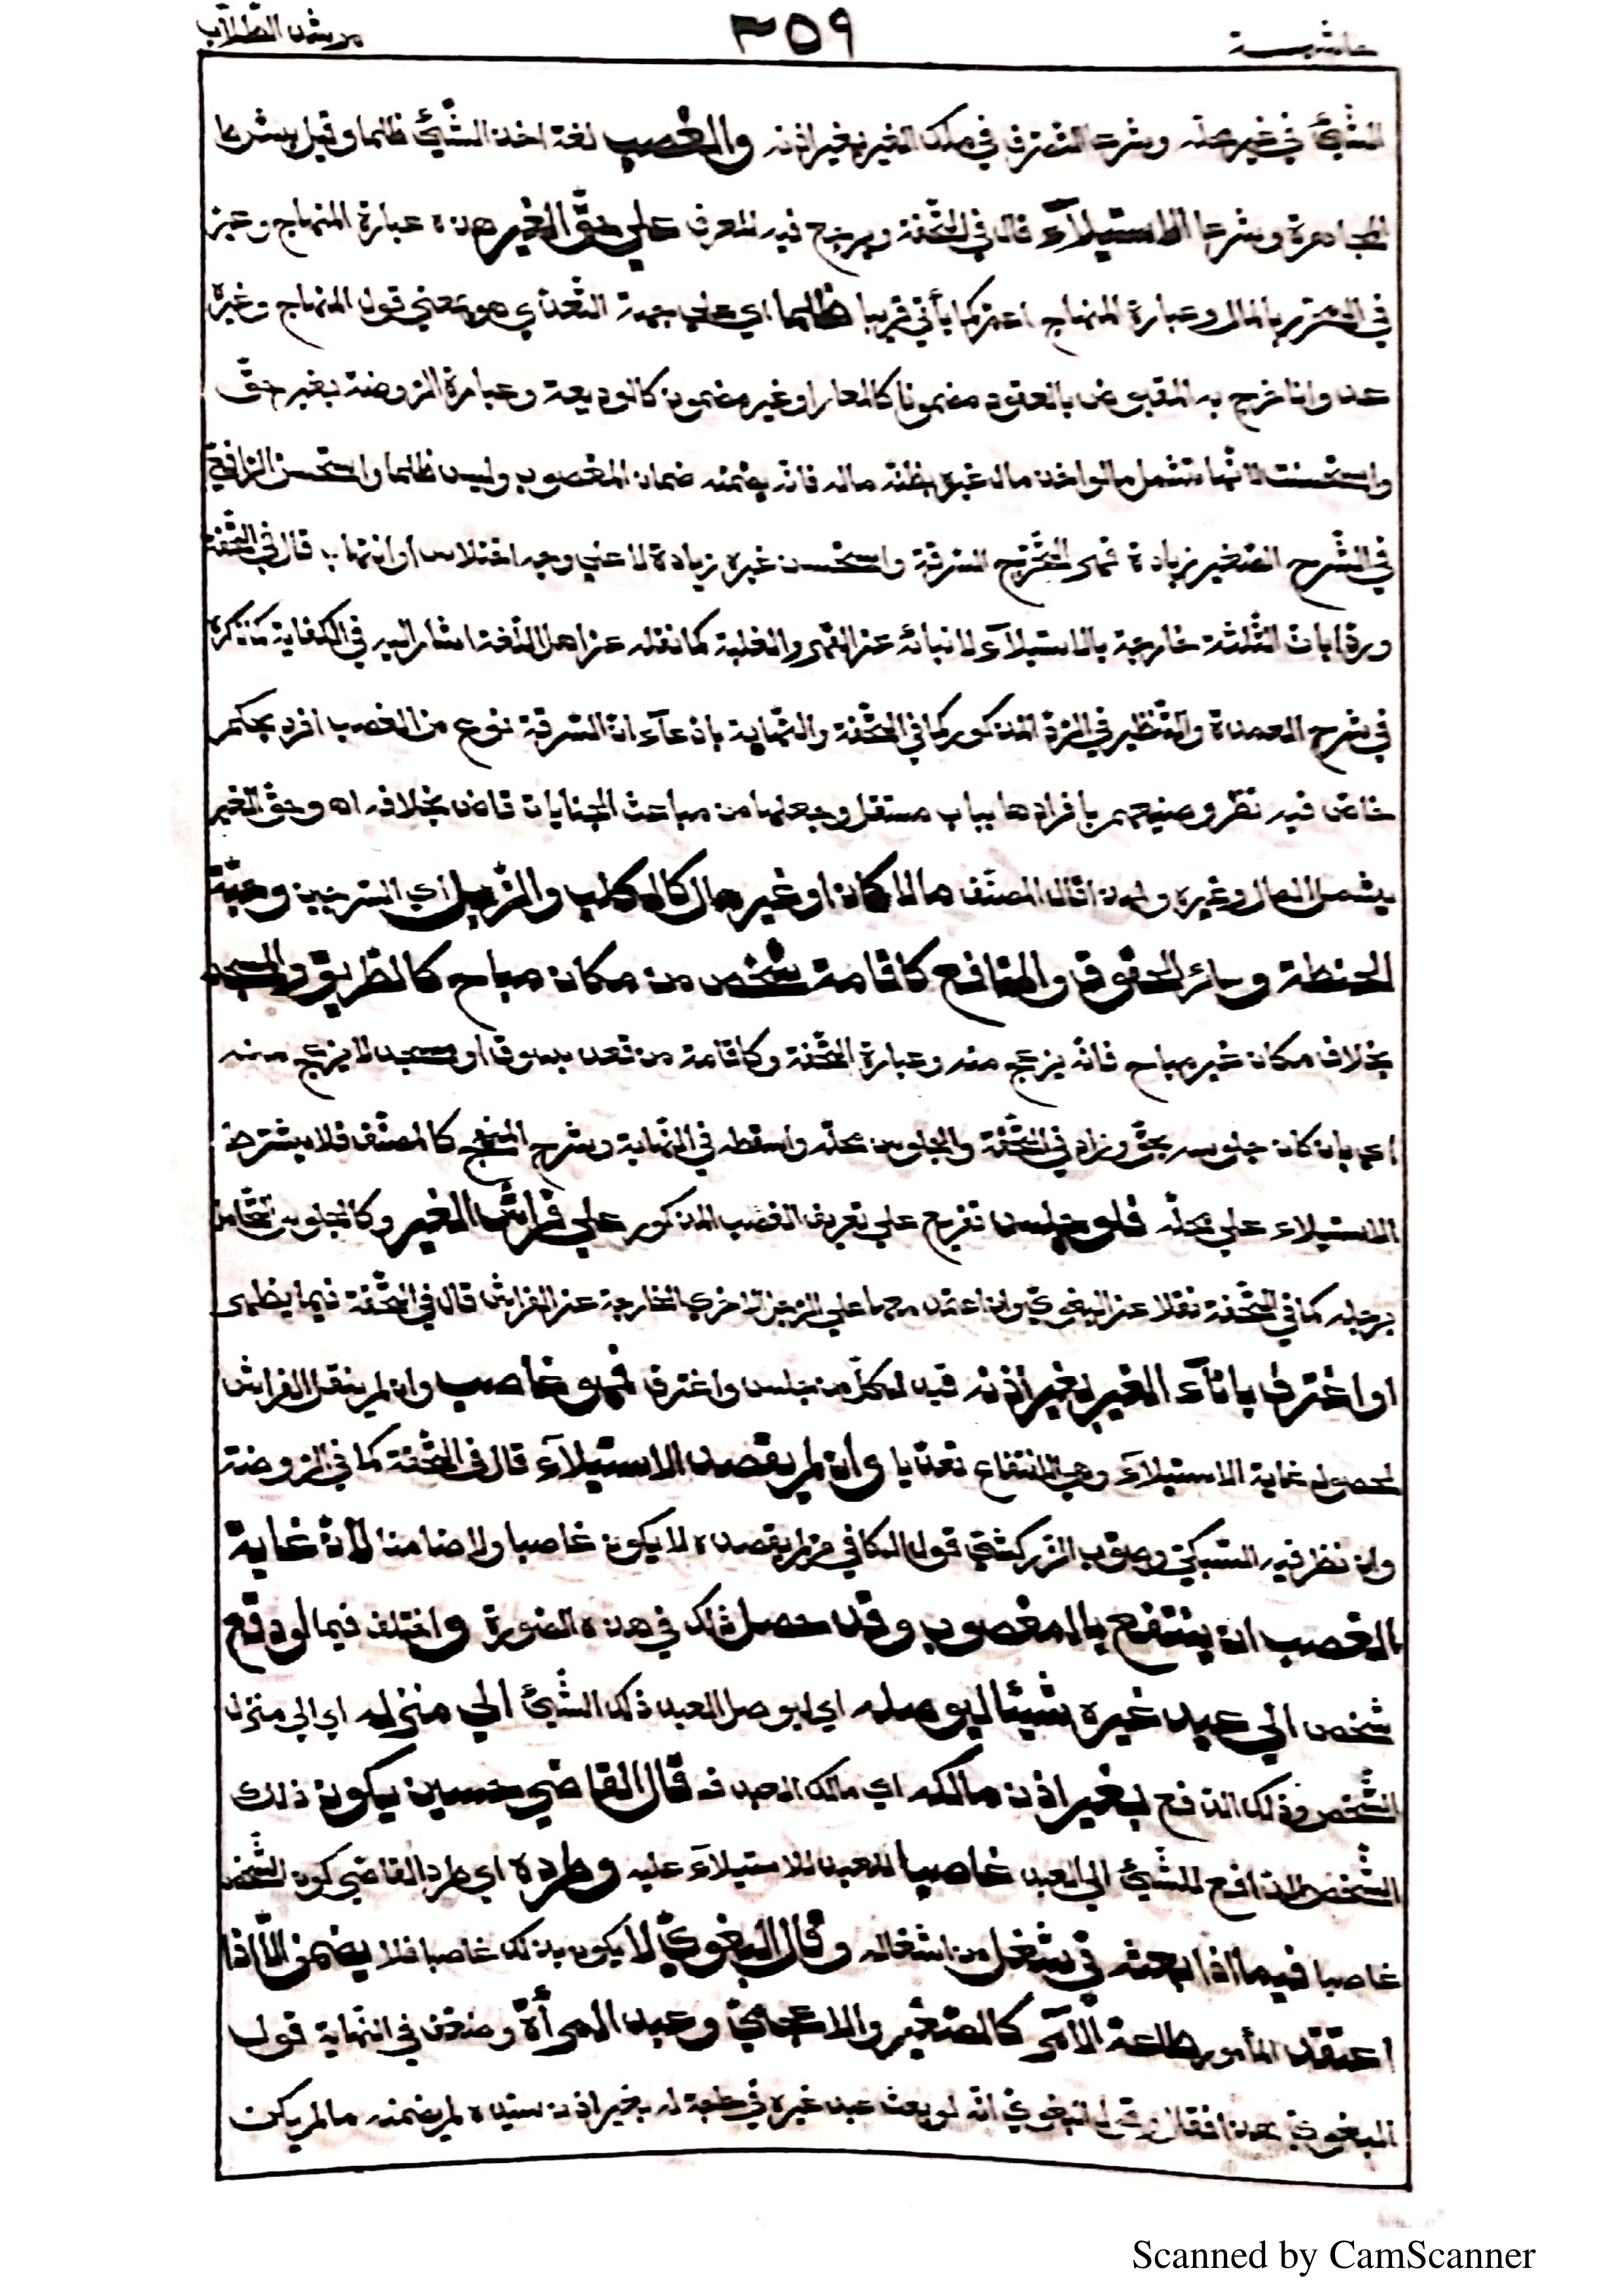 حاشية ٣٥٩ مرشد الطلاب
الشّيئ في غير محله وشرعا التصرف في ملك الغير بغير اذنه والغصب لغة اخذ الشّيئ ظلما وقيل بشرط
المجاهرة وشرعا الاستيلآء قال في التّحفة ويرجع فيه للعرف علي حقّ الغير هذه عبارة المنهاج وعبر
في بالمال وعبارة المنهاج اعمّ كما يأتي قريبا ظلما اي علي جهة التّعدّي هو معني قول المنهاج وغيره
عدوانا خرج به المقبوض بالعقود مضمونا كالمعار او غير مضمون كالوديعة وعبارة الرّوضة بغير حقّ
واستحسنت لانّها تشمل ما لو اخذ مال غيره يظنّه ماله فانّه يضمنه ضمان المغصوب وليس ظلما واستحسن الرّافعيّ
في الشّرح الصّغير زيادة لتخرج السّرقة واستحسن غيره زيادة لا علي وجه اختلاس او انتهاب قال في التّحفة
وردّ بان الثّلثة خارجة بالاستيلآء لانبائه عن القهر والغلبة كما نقله عن اهل اللّغة اشار اليه في الكفاية كما ذكره
في شرح العمدة والتّنظير في الردّ المذكور كما في التّحفة والنّهاية بادّعآء انّ السّرقة نوع من الغصب افرد بحكم
خاصّ فيه نظر وصنيعهم بافرادها بباب مستقل وجعلها من مباحث الجنايات قاض بخلافه اه وحقّ الغير
يشمل المال وغيره ولهذا قال المصنّف مالا كان او غير مال كالكلب والزّبل اي السّرجين وحبّة
الحنطة وسائر الحقوق والمنافع كاقامة شخص من مكان مباح كالطّريق والمسجد
بخلاف مكان غير مباح فانّه يزعج منه وعبارة التّحفة وكاقامة من قعد بسوق او مسجد لا يزعج منه
اي بان كان جلوسه بحقّ وزاد في التّحفة والجلوس محلّه واسقطه في النّهاية وشرح المنهج كالمصنّف فلا يشترط
الاستيلاء علي محلّه فلو جلس تفريع علي تعريف الغصب المذكور علي فراش الغير وكالجلوس التّحامل
برجله كما في التّحفة نقلا عن البغويّ وان اعتمد معها علي الرّجل الاخري الخارجة عن الفراش قال في التّحفة فيما يظهر
او اغترف بانآء الغير بغير اذنه قيد لكلّ من جلس واغترف فهو غاصب وان لم ينقل الفراش
لحصول غاية الاستيلآء وهي الانتفاع تعدّيا وان لم يقصد الاستيلآء قال في التّحفة كما في الرّوضة
وان نظر فيه السّبكيّ وصوّب الزّركشيّ قول الكافي من لم يقصده لا يكون غاصبا ولا ضامنا لانّ غاية
الغصب ان ينتفع بالمغصوب وقد حصل ذلك في هذه الصّورة واختلف فيما لو دفع
شخص الي عبد غيره شيئا ليوصله اي ليوصل العبد ذلك الشّيئ الي منزله اي الي منزل
الشّخص وذلك الدّفع بغير اذن مالكه اي مالك العبد فـ قال القاضي حسين يكون ذلك
الشّخص الدّافع للشّيئ الي العبد غاصبا للعبد للاستيلآء عليه وطرده اي طرد القاضي كون الشّخص
غاصبا فيما اذا بعثه في شغل من اشغاله وقال البغويّ لا يكون بذلك غاصبا فلا يضمن الّا اذا
اعتقد المأمور طاعة الآمر كالصّغير والاعجميّ وعبد المرأة وضعّف في النّهاية قول
البغويّ هذا فقال وقول البغويّ انّه لو بعث عبد غيره في حاجة له بغير اذن سيّده لم يضمنه ما لم يكن
Scanned by CamScanner